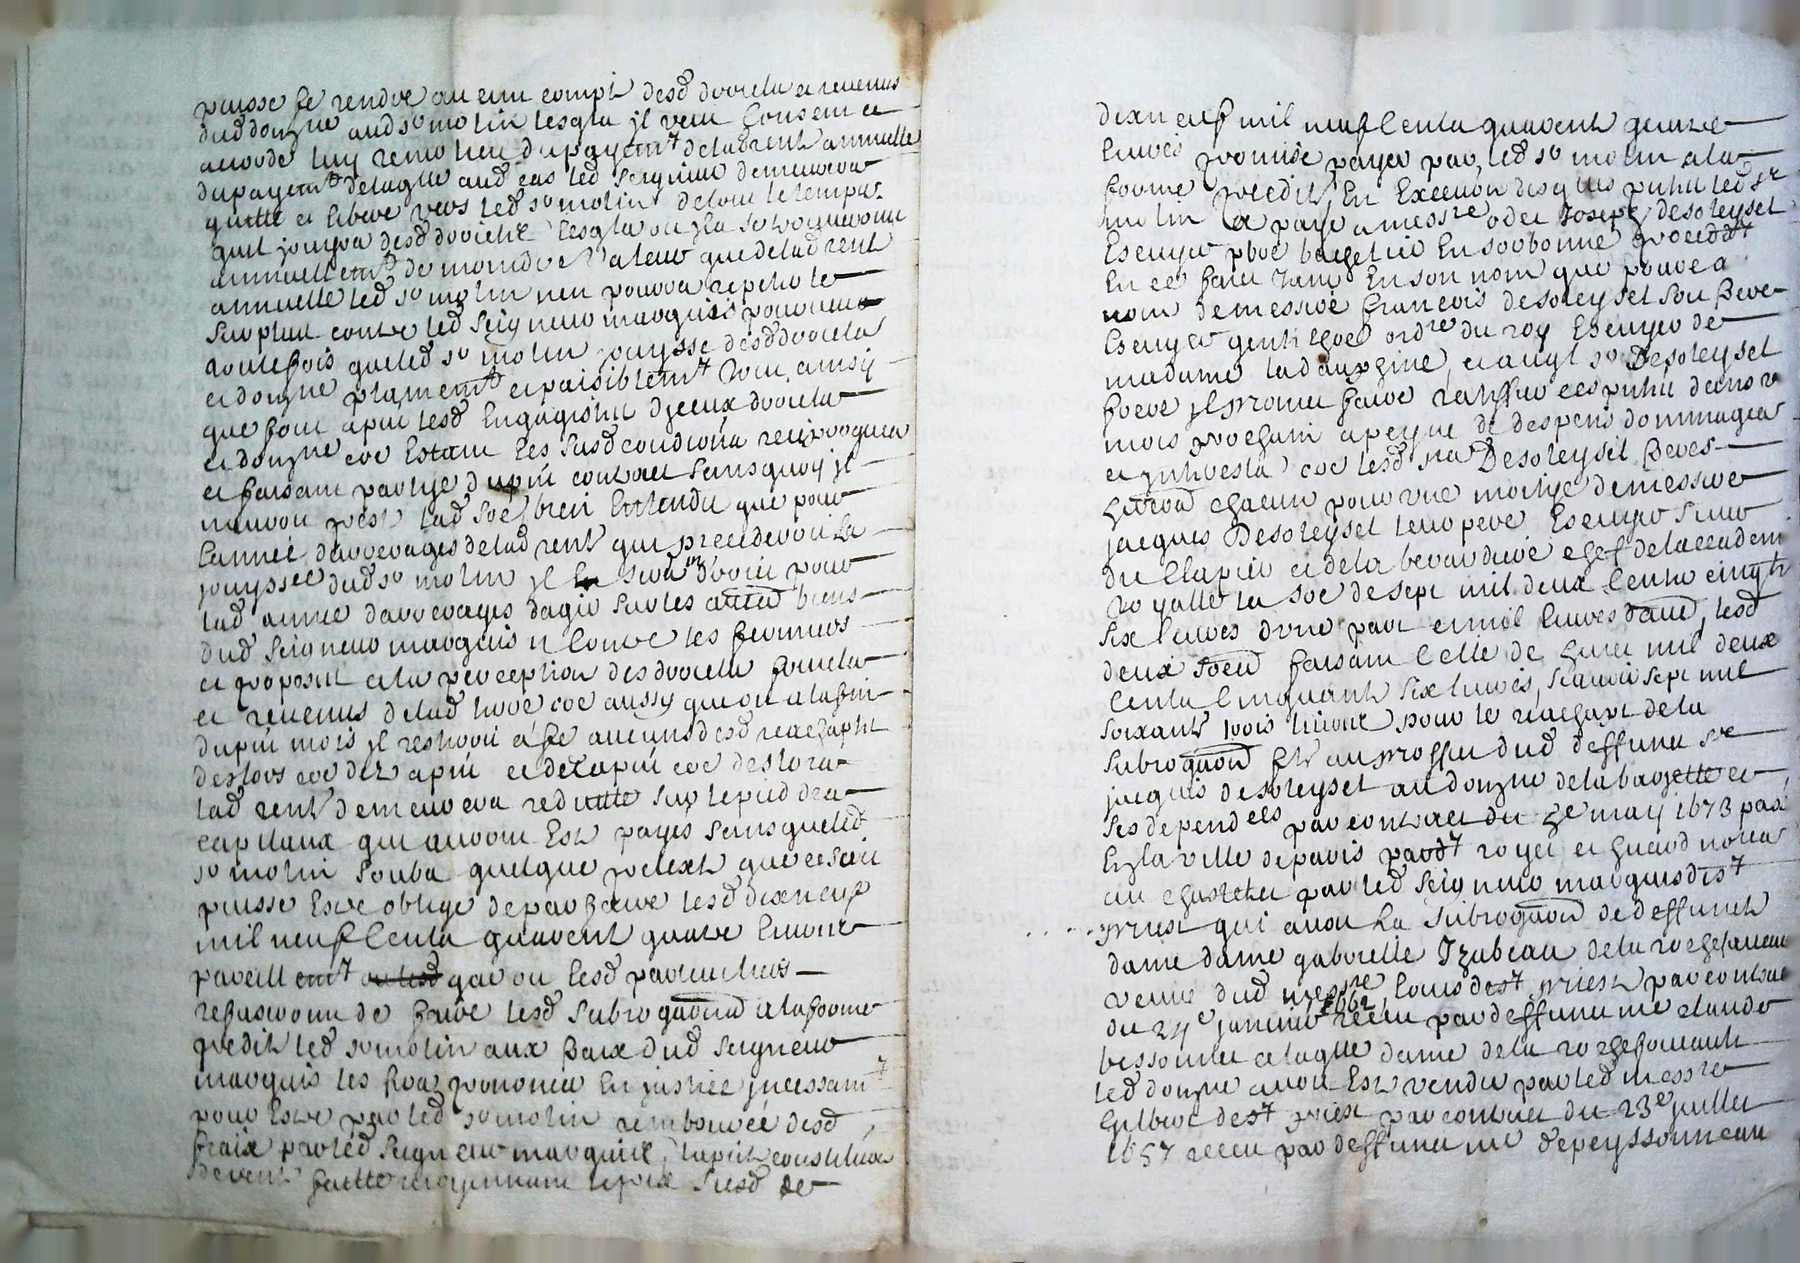 puisse se rendre au cun compt desd droicts et revenus
dud domyne aud sr molin lesqls il veut consent et
accorde luy tenir lieu du payemt de lad rente annuelle
du payemt de laqlle aud cas led seigneur demeurera
quitte et libere vers led sr molin de tout le temps
quil jouyra desd droicts lesqls ou ils se trouveroient
annuellemt de moindre valeur que de lad rent
annuelle led sr molin nen pourra repeter le
surplus contre led seigneur marquis pourveu
toutefois que led sr molin jouysse desd droicts
et domyne plainemt et paisiblemt tout ainsy
que font apnt lesd
et domyne coe estant les susd condicions reciproques
et faisant partye du pnt contract sans quoy il
nauroit prest lad soe bien entendu que pour
lannee darrerages de lad rent qui precedera la
jouyssce dud sr molin il sera en droict pour
lad annee darrerages dagir sur les autres biens
dud seigneur marquis n contre les fermiers
et preposes a la perception des droicts
et revenus de lad terre coe aussy que ou a la fin
du pnt mois il resteroit a fe aucuns desd reachapts
deslors coe dez apnt et dez apnt coe deslors
lad rent demeurera reduitte sur le pied des
capitaux qui auront este payes sans que led
sr molin soubs quelque pretext que ce soit
puisse estre oblige de parfaire lesd dixneuf
mil neuf cents quarent quatre livres
pareillemt ou lesd que ou lesd particuliers
refuseroient de faire lesd subrogaons a la forme
predit led sr molin aux fraix dud seigneur
marquis les fera prononcer en justice incessamt
pour estre par led sr molin rembourcé desd
fraix par led seigneur marquis, lapnt constitution
de rent faitte moyennant le prix susd de
dixneuf mil neuf cents quarent quatre
livres promise payer par led sr molin a la
forme predit, En execuon desqlles pnts led sr
molin a paye a messre odet Joseph de soleysel
Escuyer pbre bachelier en sorbonne procedt
en ce fait tant en son nom que pour et a
nom de messire francois de soleysel son frere
Escuyer gentilhoe ordre du roy Escuyer de
madame la dauphine, et auql sr Desoleysel
frere il promet faire ratiffier ces pnts dans un
mois prochain a peyne de despens dommages
et intherests coe lesd srs Desoleysel freres
heritiers chacun pour une moitye de messire
jacques Desoleysel leur pere Escuyer sieur
du Clapier et de la berardiere chef de lacademie
royalle la soe de sept mil deux cents vingt
six livres dune part et mil livres dautre, lesd
deux soes faisant celle de huict mil deux
cents vingt six livres, scavoir sept mil
soixante trois livres pour le reachapt de la
subrogaon fte au proffit dud deffunt sr
jacques desoleysel au domyne de la bastie et
ses dependces par contract du 5e may 1673 passé
en la ville de paris pardt royer et huard nores
au chastelet par led seigneur marquis de st
priest qui avoit la subrogaon de deffunte
dame dame gabrielle Izabeau de la rochefaucau
vefve dud messre louis de st priest par contract
du 24e janvier 1662 receu par deffunt me claude
bessonnet a laqlle dame de la rochefoucault
led domyne avoit este vendu par led messre
Gilbert de st priest par contract du 23e juillet
1657 receu par deffunt me depeyssonneau